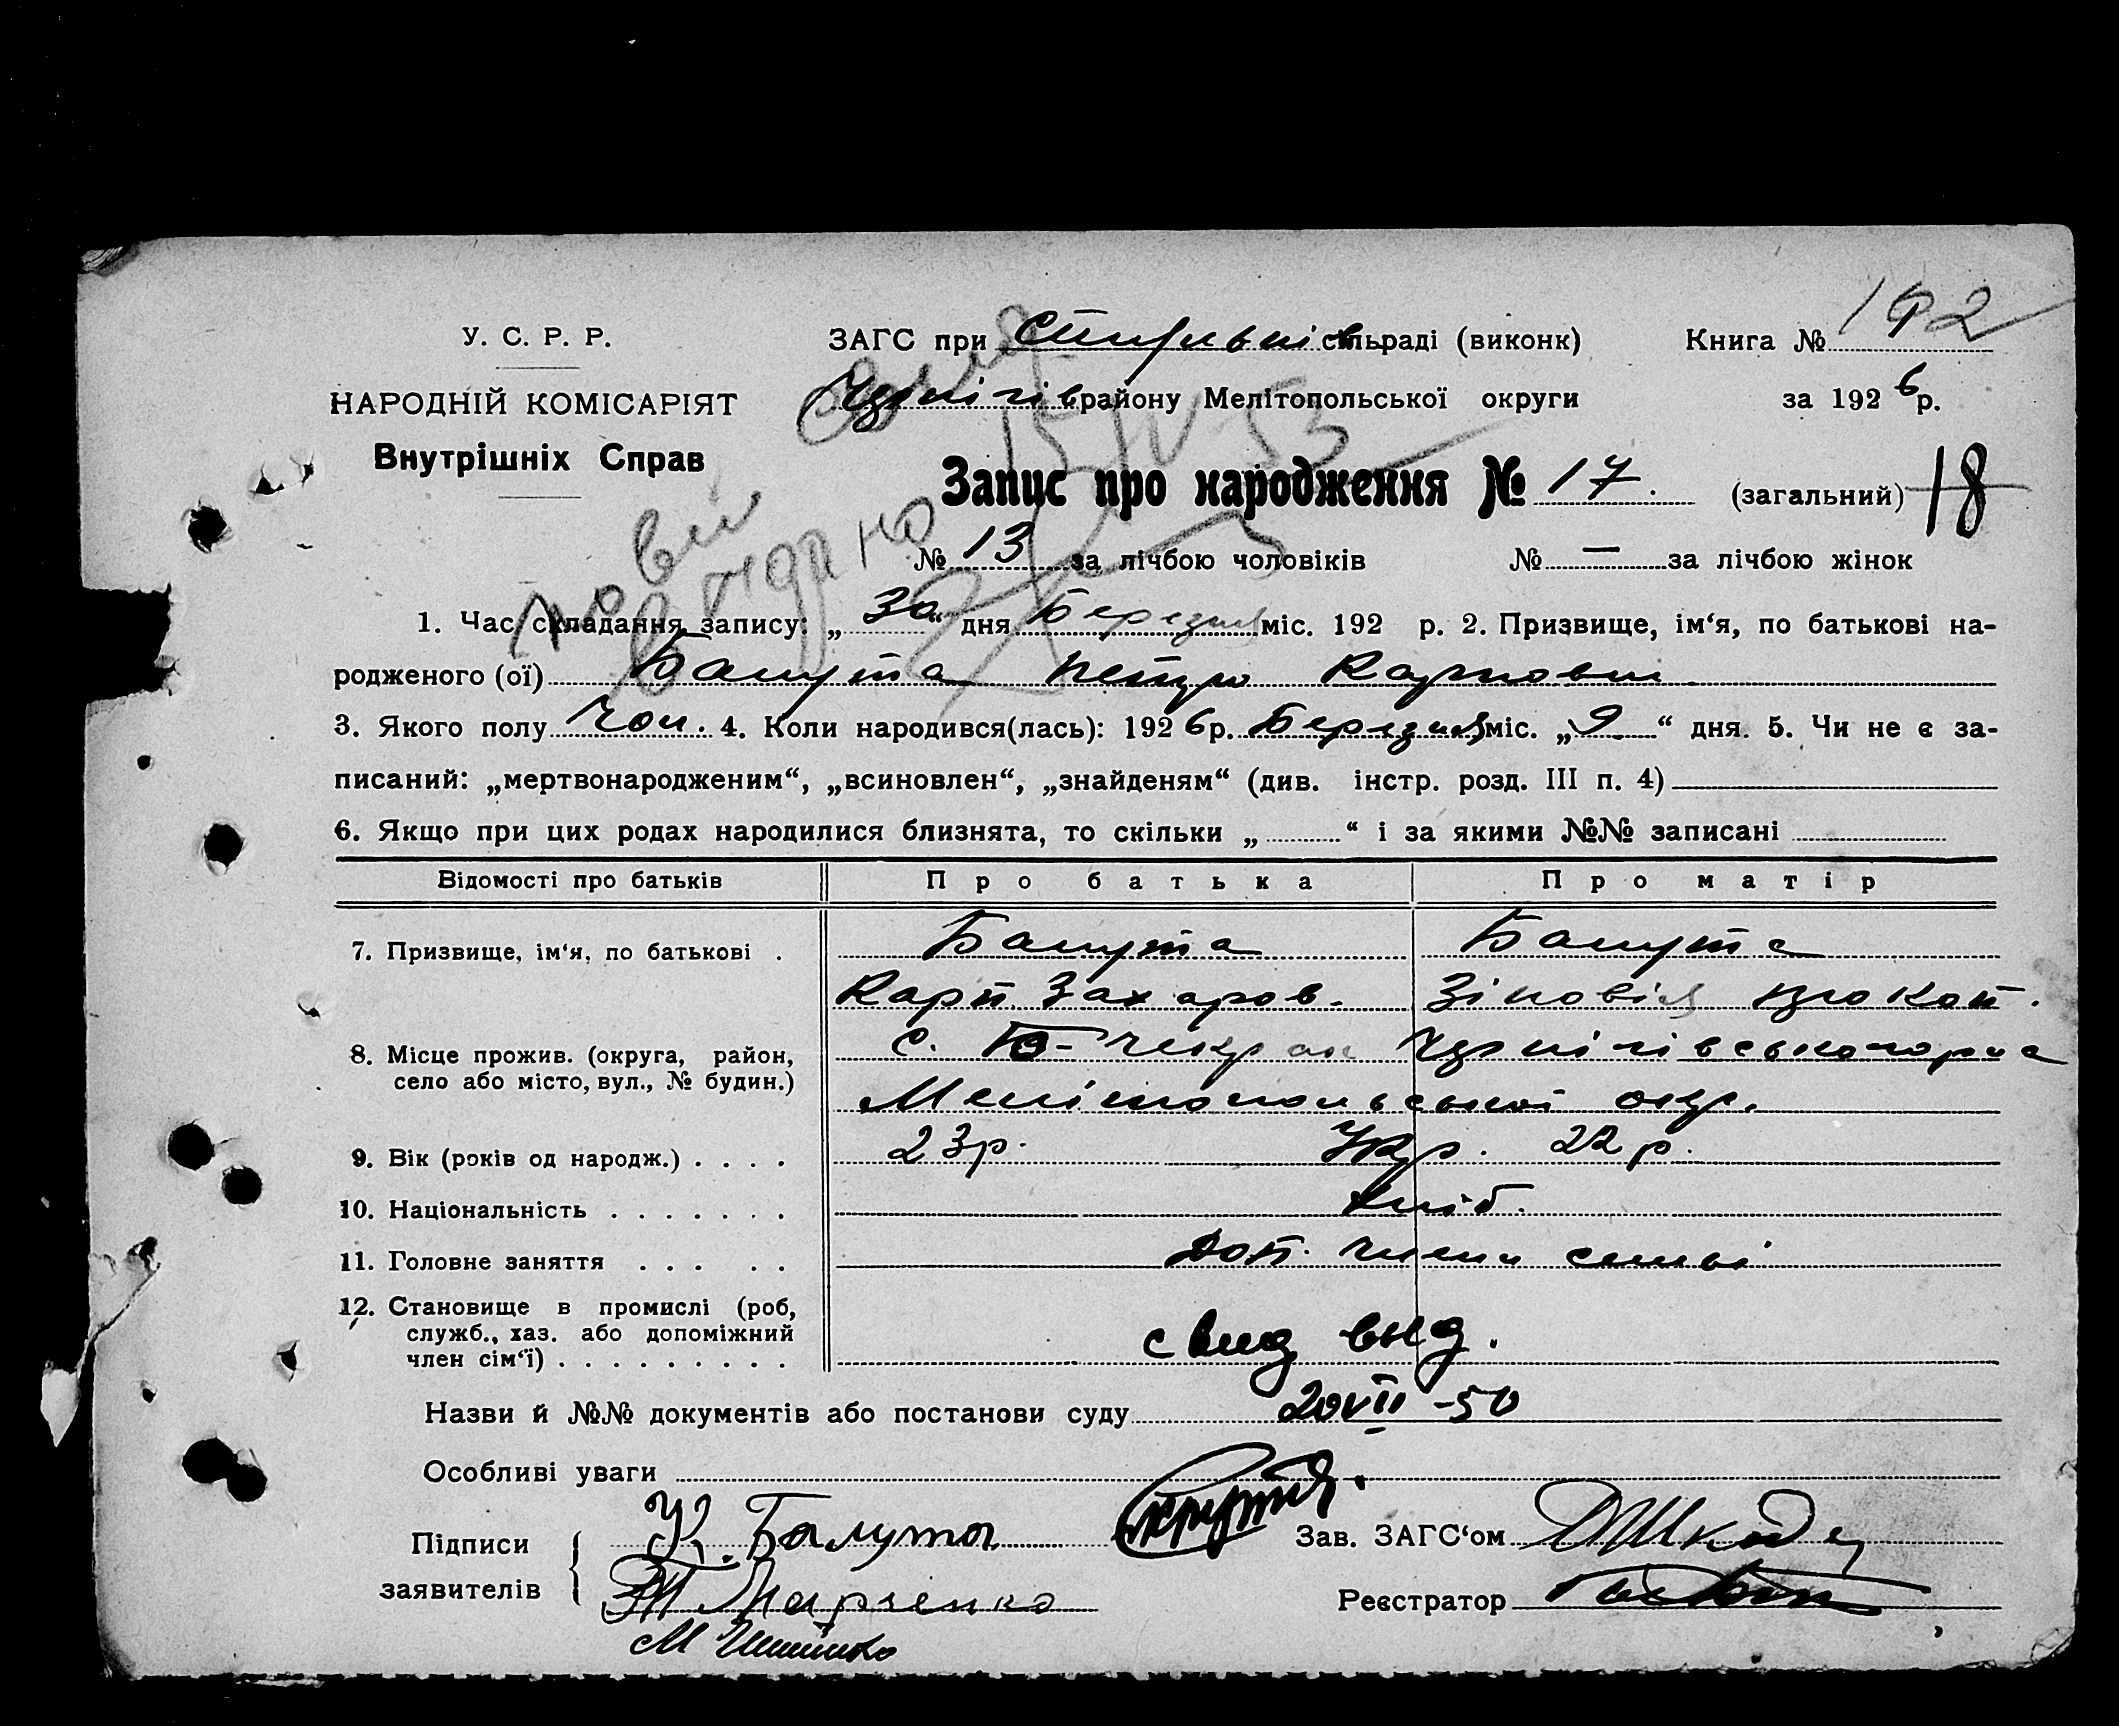 У. С. Р. Р.
НАРОДНІЙ КОМІСАРІЯТ
Внутрішніх Справ
ЗАГС при сільраді (виконк)
Книга № 192
Чернігів району Мелітопольської округи
за 1926 р.
Запис про народження № 17. (загальний) 18
№ 13 за лічбою чоловіків № — за лічбою жінок
1. Час складання запису: „30“ дня Березня міс. 192 р. 2. Призвище, ім‘я, по батькові на-
родженого (ої) Балута Петро Карпович
3. Якого полу Чол. 4. Коли народився(лась): 1926 р. Березня міс. „9“ дня. 5. Чи не є за-
писаний: „мертвонародженим“, „всиновлен“, „знайденям“ (див. інстр. розд. III п. 4)
6. Якщо при цих родах народилися близнята, то скільки „ “ і за якими №№ записані
Відомості про батьків Про батька Про матір
7. Призвище, ім‘я, по батькові . Балута Балута
Карп Захаров. Зіновія Прокоп.
8. Місце прожив. (округа, район,
село або місто, вул., № будин.)
с. Чернігівського району
Мелітопольської окр.
9. Вік (років од народж.) . . . . 23 р. Укр. 22 р.
10. Національність . . . . . . . хліб.
11. Головне заняття . . . . . Доп. член семьі
12. Становище в промислі (роб,
служб., хаз. або допоміжний
член сім‘ї) . . . . . . . . .
свид выд.
Назви й №№ документів або постанови суду 20 VII - 50
Особливі уваги
Підписи
заявителів
К. Балута
Марченко
Зав. ЗАГС‘ом Шкода
Реєстратор
15/IV 53